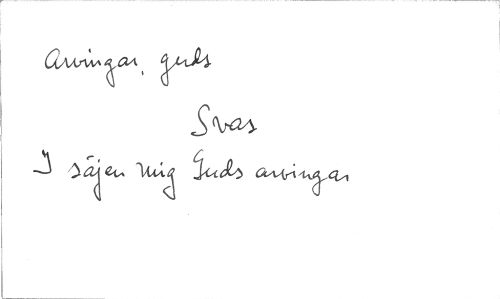 Arvingar, guds
Svar
I säjen mig Guds arvingar